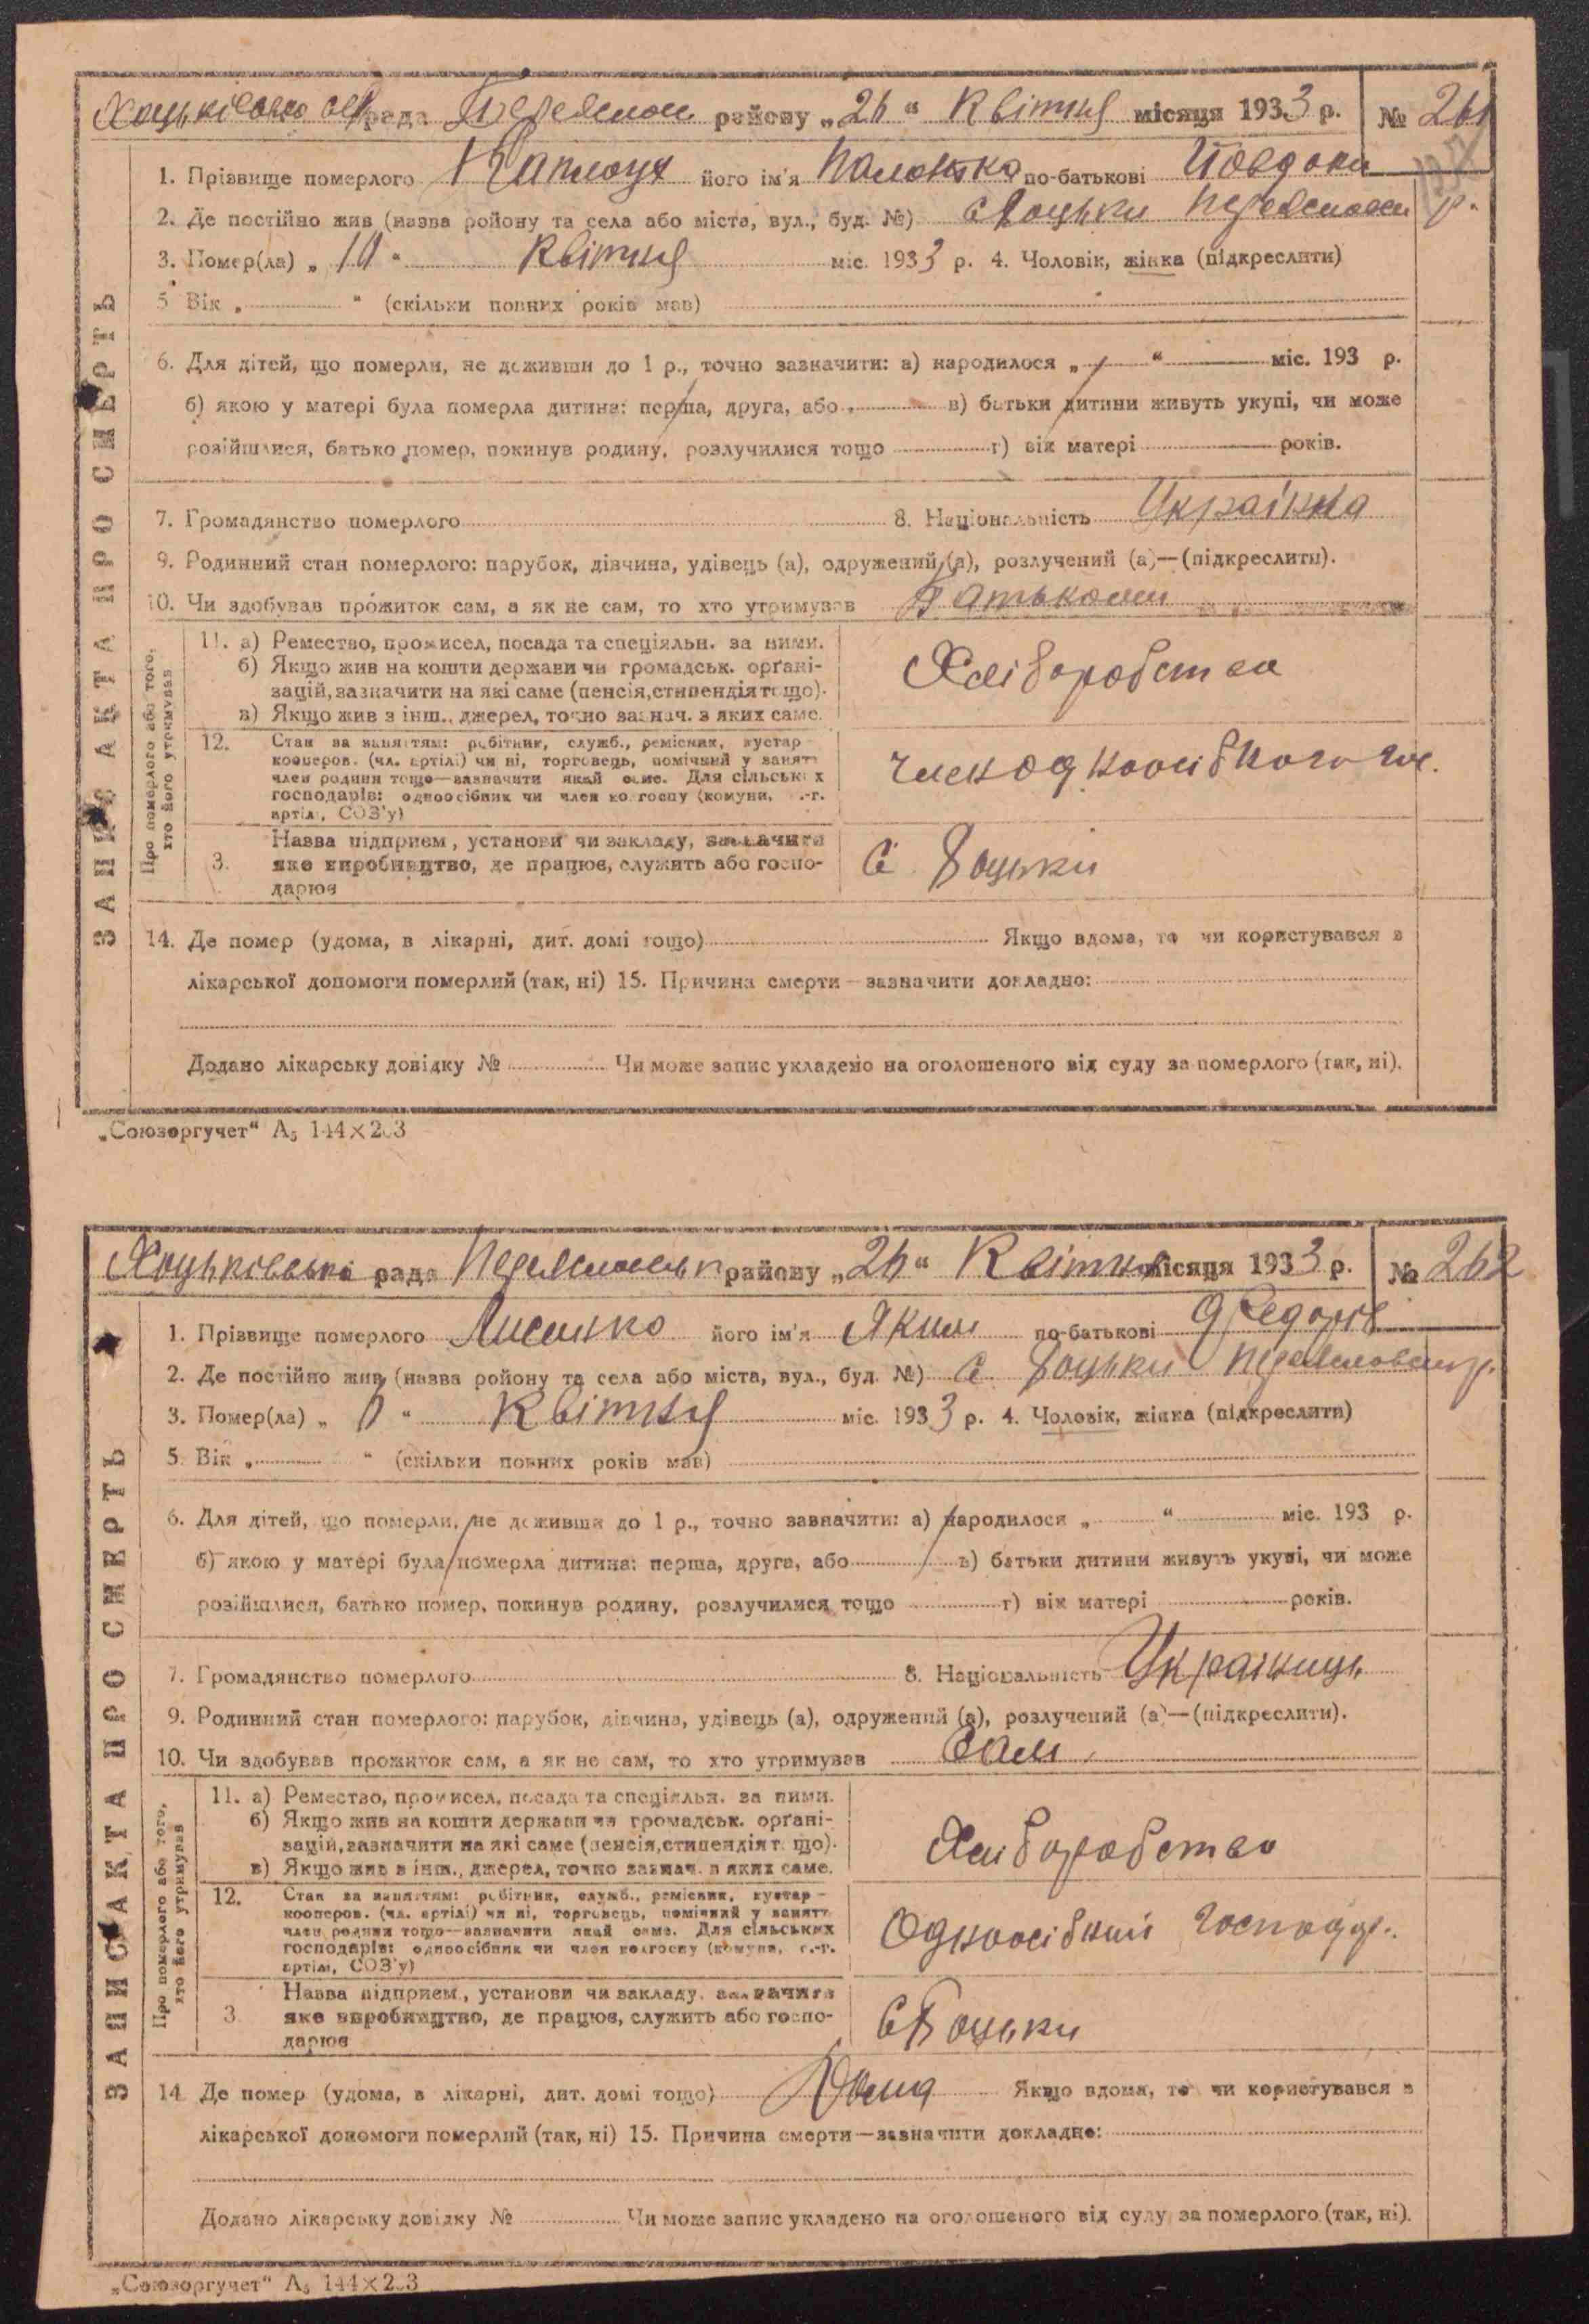 Хоцьківська рада Переяслов району „26" Квітня місяця 1933 р. № 261
1. Прізвище померлого його ім'я по-батькові
2. Де постійно жив (назва ройону та села або міста, вул., буд. №) с Хоцьки Переяслов р.
3. Помер(ла) „10" Квітня міс. 1933 р. 4. Чоловік, жінка (підкреслити)
5 Вік „ " (скільки повних років мав)
6. Для дітей, що померли, не доживши до 1 р., точно зазначити: а) народилося „ " міс. 193 р.
б) якою у матері була померла дитина: перша, друга, або в) батьки дитини живуть укупі, чи може
розійшлися, батько помер, покинув родину, розлучилися тощо г) вік матері років.
7. Громадянство померлого 8. Національність Українка
9. Родинний стан померлого: парубок, дівчина, удівець (а), одружений (а), розлучений (а)—(підкреслити).
10. Чи здобував прожиток сам, а як не сам, то хто утримував Батьком
11. а) Ремество, промисел, посада та спеціяльн. за ними.
б) Якщо жив на кошти держави чи громадськ. орґані-
зацій, зазначити на які саме (пенсія, стипендія тощо).
в) Якщо жив з інш., джерел, точно зазнач. з яких саме.
Хліборобство
12. Стан за заняттям: робітник, служб., ремісник, кустар -
кооперов. (чл. артілі) чи ні, торговець, помічний у занятт
член родини тощо—зазначити який саме. Для сільських
господарів: одноосібник чи член колгоспу (комуни, с.-г.
артілі, СОЗ'у)
член одноосібного гос.
3. Назва підприєм., установи чи закладу, зазначити
яке виробництво, де працює, служить або госпо-
дарює
С Хоцьки
14. Де помер (удома, в лікарні, дит. домі тощо) Якщо вдома, то чи користувався з
лікарської допомоги померлий (так, ні) 15. Причина смерти—зазначити докладно:
Додано лікарську довідку № Чи може запис укладено на оголошеного від суду за померлого (так, ні).
„Союзоргучет" А₅ 144×203
ЗАПИС АКТА ПРО СМЕРТЬ
Про померлого або того,
хто його утримував
Хоцьківська рада Переясловськ району „26" Квітня місяця 1933 р. № 262
1. Прізвище померлого Лисенко його ім'я Яким по-батькові Федорів
2. Де постійно жив (назва ройону та села або міста, вул., буд. №) с. Хоцьки Переяслов р.
3. Помер(ла) „ " Квітня міс. 1933 р. 4. Чоловік, жінка (підкреслити)
5. Вік „ " (скільки повних років мав)
6. Для дітей, що померли, не доживши до 1 р., точно зазначити: а) народилося „ " міс. 193 р.
б) якою у матері була померла дитина: перша, друга, або в) батьки дитини живуть укупі, чи може
розійшлися, батько помер, покинув родину, розлучилися тощо г) вік матері років.
7. Громадянство померлого 8. Національність Українець
9. Родинний стан померлого: парубок, дівчина, удівець (а), одружений (а), розлучений (а)—(підкреслити).
10. Чи здобував прожиток сам, а як не сам, то хто утримував Сам
11. а) Ремество, промисел, посада та спеціяльн. за ними.
б) Якщо жив на кошти держави чи громадськ. орґані-
зацій, зазначити на які саме (пенсія, стипендія тощо).
в) Якщо жив з інш., джерел, точно зазнач. з яких саме.
Хліборобство
12. Стан за заняттям: робітник, служб., ремісник, кустар -
кооперов. (чл. артілі) чи ні, торговець, помічний у занятт
член родини тощо—зазначити який саме. Для сільських
господарів: одноосібник чи член колгоспу (комуни, с.-г.
артілі, СОЗ'у)
Одноосібний господар.
3. Назва підприєм., установи чи закладу, зазначити
яке виробництво, де працює, служить або госпо-
дарює
С Хоцьки
14. Де помер (удома, в лікарні, дит. домі тощо) Дома Якщо вдома, то чи користувався з
лікарської допомоги померлий (так, ні) 15. Причина смерти—зазначити докладно:
Додано лікарську довідку № Чи може запис укладено на оголошеного від суду за померлого (так, ні).
„Союзоргучет" А₅ 144×203
ЗАПИС АКТА ПРО СМЕРТЬ
Про померлого або того,
хто його утримував